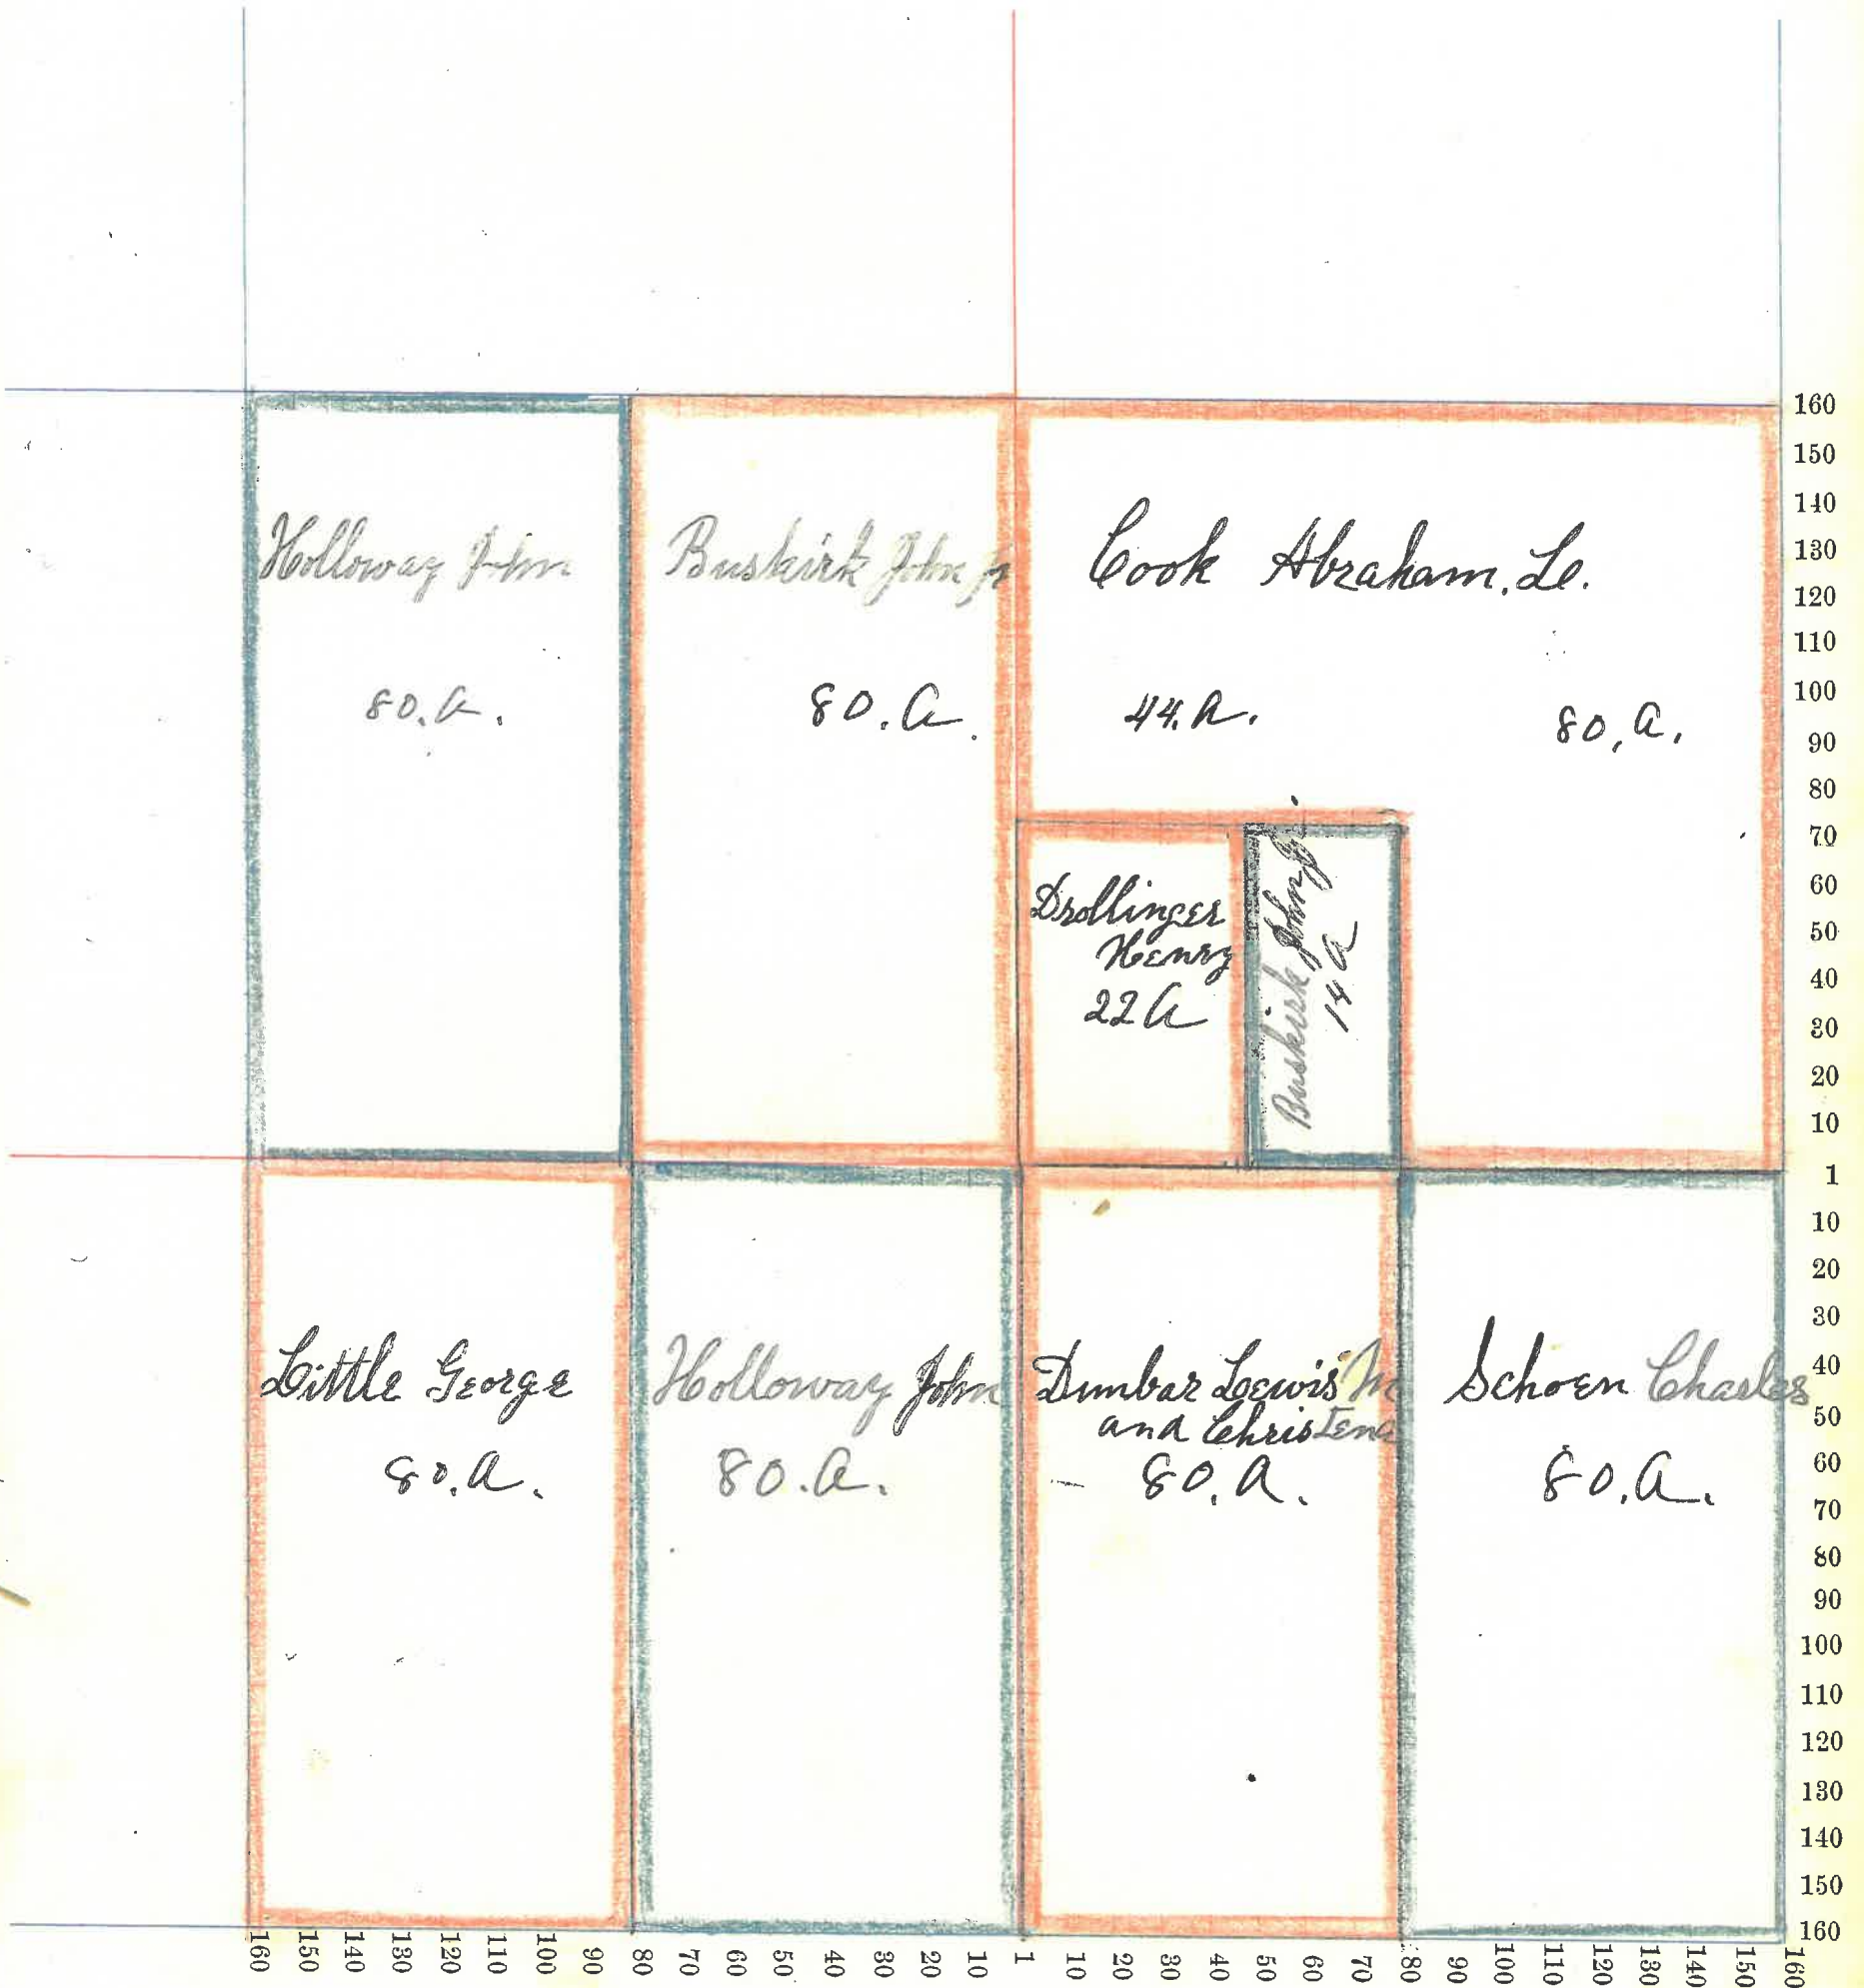 Holloway John
80. a.
Buskirk John Jr
80. a.
Cook Abraham. Le.
44. a.
80, a,
Drollinger
Henry
22 a
Buskirk John Jr
14 a
Little George
80. a.
Holloway John
80. a.
Dunbar Loewis M
and Christena
80. a.
Schoen Charles
80. a.
160
150
140
130
120
110
100
90
80
70
60
50
40
30
20
10
1
10
20
30
40
50
60
70
80
90
100
110
120
130
140
150
160
160 150 140 130 120 110 100 90 80 70 60 50 40 30 20 10 1 10 20 30 40 50 60 70 80 90 100 110 120 130 140 150 160